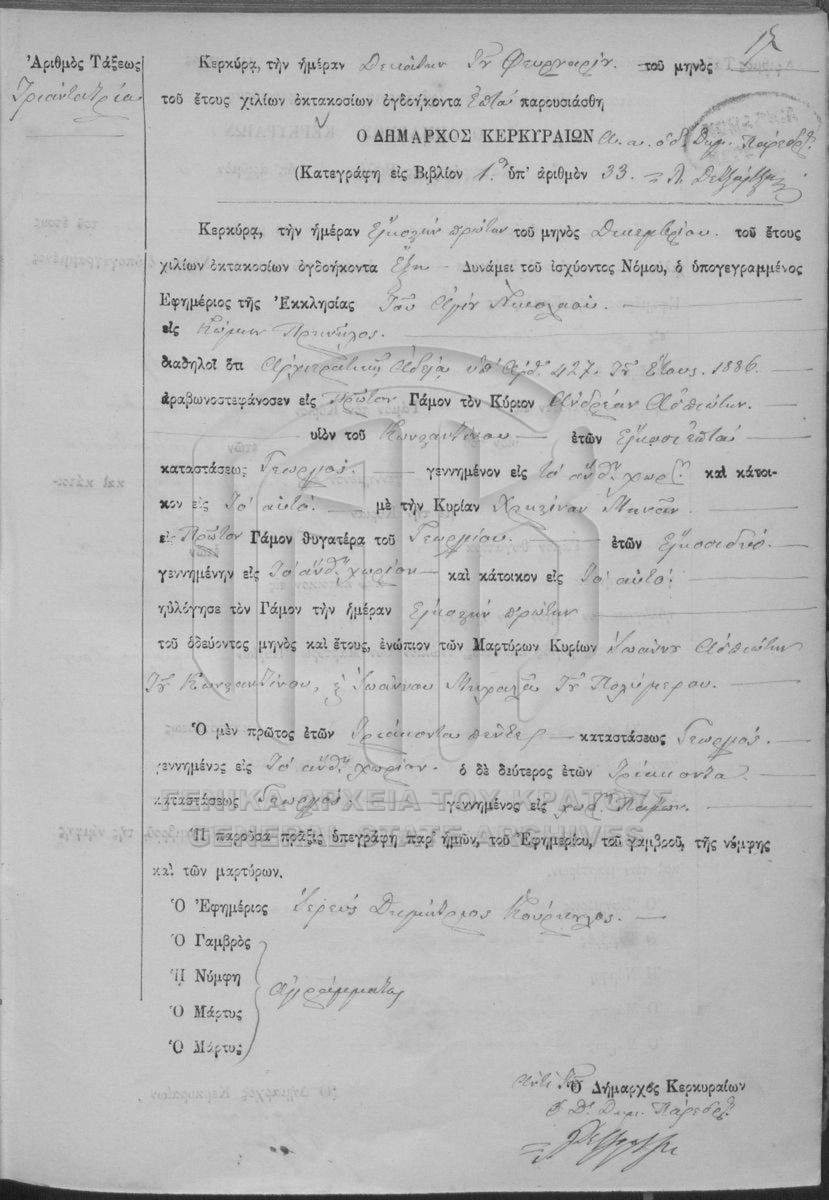 Ἀριθμὸς Τάξεως
Τριάντα τρία
Κερκύρα, τὴν ἡμέραν Δεκάτην τοῦ Φευρουαρίου τοῦ μηνὸς
τοῦ ἔτους χιλίων ὀκτακοσίων ὀγδοήκοντα ἑπτὰ παρουσιάσθη
Ὁ ΔΗΜΑΡΧΟΣ ΚΕΡΚΥΡΑΙΩΝ
(Κατεγράφη εἰς Βιβλίον 1ον ὑπ' ἀριθμὸν 33.
Κερκύρα, τὴν ἡμέραν Εἰκοστὴν πρώτην τοῦ μηνὸς Δεκεμβρίου. τοῦ ἔτους
χιλίων ὀκτακοσίων ὀγδοήκοντα ἕξη — Δυνάμει τοῦ ἰσχύοντος Νόμου, ὁ ὑπογεγραμμένος
Ἐφημέριος τῆς Ἐκκλησίας Τοῦ Ἁγίου Νικολάου. —
εἰς Κώμην
διαδηλοῖ ὅτι Ἀρχιερατικῇ Ἀδείᾳ ὑπ' Ἀρθ. 427. τοῦ Ἔτους. 1886. —
ἀραβωνοστεφάνοσεν εἰς Πρῶτον Γάμον τὸν Κύριον Ἀνδρέαν Ἀσπιώτην.
υἱὸν τοῦ Κωνσταντίνου — ἐτῶν Εἴκοσι ἑπτὰ
καταστάσεως Γεωργός. — γεννημένον εἰς τὸ ἄνθη χωρ. καὶ κάτοι-
κον εἰς Τὸ αὐτό. — μὲ τὴν Κυρίαν
εἰς Πρῶτον Γάμον θυγατέρα τοῦ Γεωργίου. — ἐτῶν Εἴκοσι δύο
γεννημένην εἰς Τὸ ἄνθη χωρίον — καὶ κάτοικον εἰς Τὸ αὐτό.
ηὐλόγησε τὸν Γάμον τὴν ἡμέραν Εἰκοστὴν πρώτην
τοῦ ὁδεύοντος μηνὸς καὶ ἔτους, ἐνώπιον τῶν Μαρτύρων Κυρίων Ἰωάννου Ἀσπιώτην
Τοῦ Κωνσταντίνου, & Ἰωάννου τοῦ Πολυμέρου. —
Ὁ μὲν πρῶτος ἐτῶν Τριάκοντα πέντε — καταστάσεως Γεωργός. —
γεννημένος εἰς Τὸ ἄνθη χωρίον. ὁ δὲ δεύτερος ἐτῶν Τριάκοντα
καταστάσεως Γεωργός — γεννημένος εἰς χωρ.
ΓΕΝΙΚΑ ΑΡΧΕΙΑ ΤΟΥ ΚΡΑΤΟΥΣ
GENERAL STATE ARCHIVES
Ἡ παροῦσα πράξις ὑπεγράφη παρ' ἡμῶν, τοῦ Ἐφημερίου, τοῦ γαμβροῦ, τῆς νύμφης
καὶ τῶν μαρτύρων.
Ὁ Ἐφημέριος Ἱερεὺς Δημήτριος
Ὁ Γαμβρὸς
Ἡ Νύμφη
ἀγράμματοι
Ὁ Μάρτυς
Ὁ Μάρτυς
Ἀντὶ Τοῦ
Ὁ Δήμαρχος Κερκυραίων
Πάρεδρ.